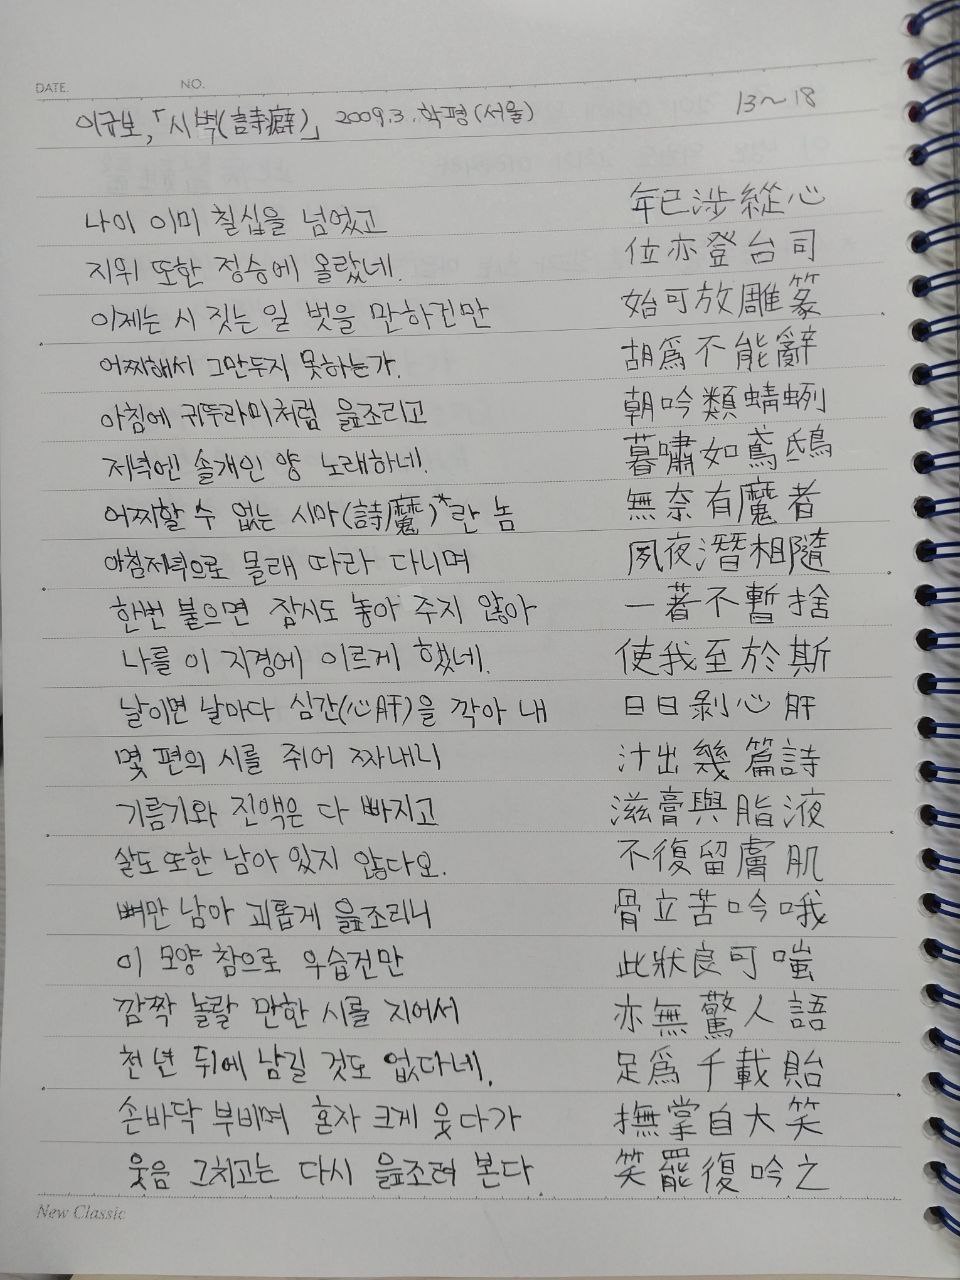 DATE. NO.
이규보,「시벽(詩癖)」 2009.3. 학평(서울) 13~18
나이 이미 칠십을 넘었고 年已涉縱心
지위 또한 정승에 올랐네. 位亦登台司
이제는 시 짓는 일 벗을 만하건만 始可放雕篆
어찌해서 그만두지 못하는가. 胡爲不能辭
아침에 귀뚜라미처럼 읊조리고 朝吟類蜻蛚
저녁엔 솔개인 양 노래하네. 暮嘯如鳶鴟
어찌할 수 없는 시마(詩魔)*란 놈 無奈有魔者
아침저녁으로 몰래 따라 다니며 夙夜潛相隨
한번 붙으면 잠시도 놓아 주지 않아 一著不暫捨
나를 이 지경에 이르게 했네. 使我至於斯
날이면 날마다 심간(心肝)을 깍아 내 日日剝心肝
몇 편의 시를 쥐어 짜내니 汁出幾篇詩
기름기와 진액은 다 빠지고 滋膏與脂液
살도 또한 남아 있지 않다오. 不復留膚肌
뼈만 남아 괴롭게 읊조리니 骨立苦吟哦
이 모양 참으로 우습건만 此狀良可嗤
깜짝 놀랄 만한 시를 지어서 亦無驚人語
천 년 뒤에 남길 것도 없다네. 足爲千載貽
손바닥 부비며 혼자 크게 웃다가 撫掌自大笑
웃음 그치고는 다시 읊조려 본다. 笑罷復吟之
New Classic